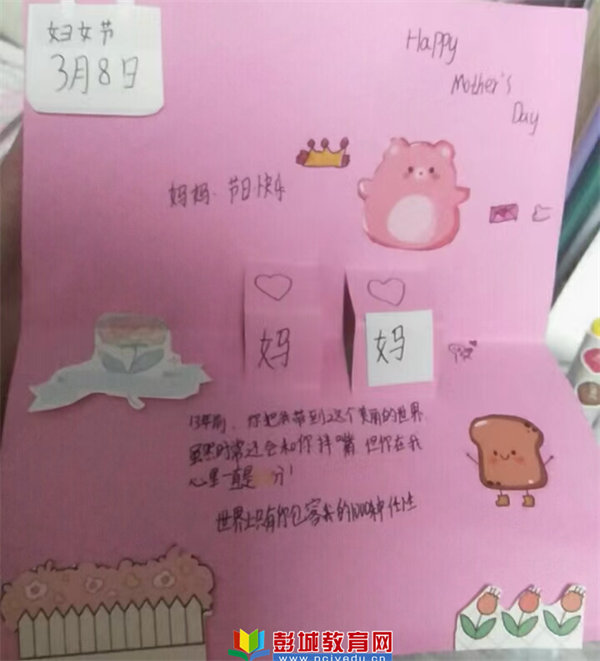 妇女节
3月8日
Happy
Mother's
Day
妈妈.节日快乐
妈 妈
13年前,你把我带到这个美丽的世界
虽然时常还会和你拌嘴,但你在我
心里一直是 分!
世界上只有你包容我的1000种任性
彭城教育网
www.pcjyedu.cn